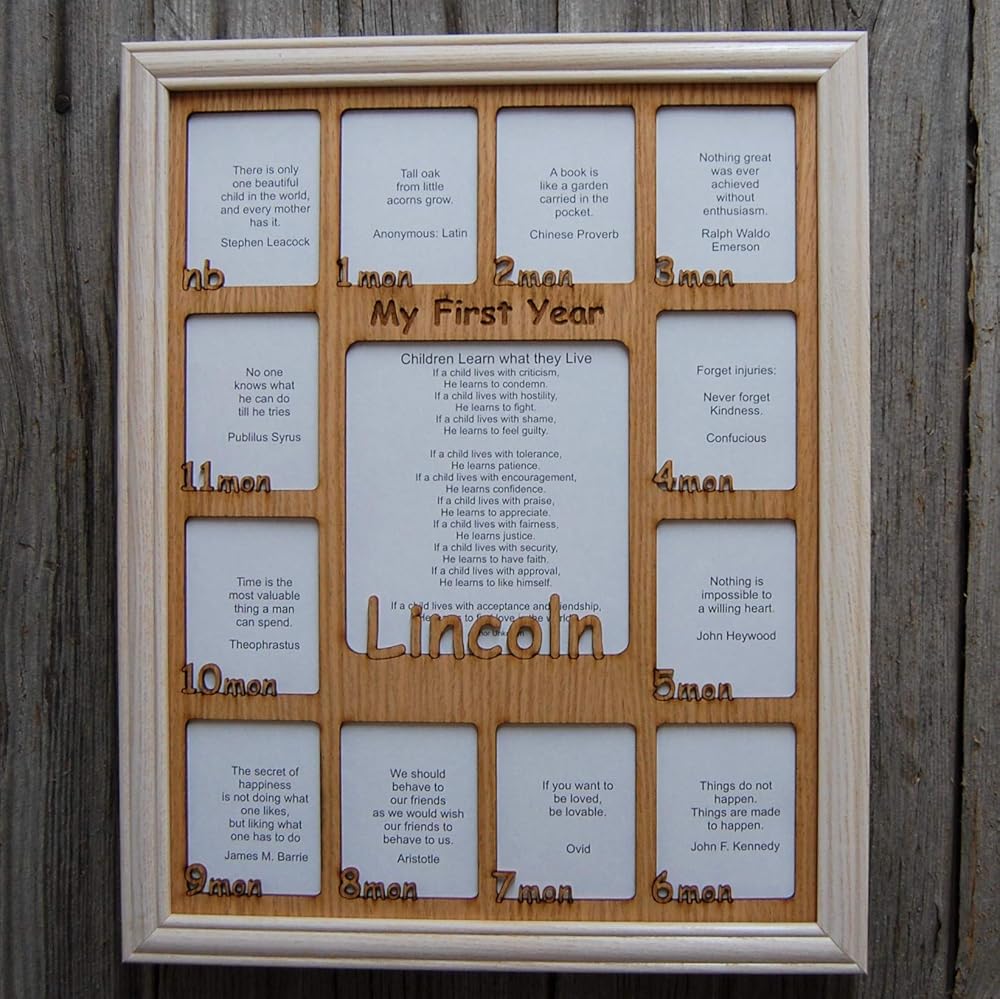 There is only
one beautiful
child in the world,
and every mother
has it.
Stephen Leacock
nb
Tall oak
from little
acorns grow.
Anonymous: Latin
1mon
A book is
like a garden
carried in the
pocket.
Chinese Proverb
2mon
Nothing great
was ever
achieved
without
enthusiasm.
Ralph Waldo
Emerson
3mon
My First Year
No one
knows what
he can do
till he tries
Publilus Syrus
11mon
Children Learn what they Live
If a child lives with criticism,
He learns to condemn.
If a child lives with hostility,
He learns to fight.
If a child lives with shame,
He learns to feel guilty.
If a child lives with tolerance,
He learns patience.
If a child lives with encouragement,
He learns confidence.
If a child lives with praise,
He learns to appreciate.
If a child lives with fairness,
He learns justice.
If a child lives with security,
He learns to have faith.
If a child lives with approval,
He learns to like himself.
If a child lives with acceptance and friendship,
He learns to find love in the world
Lincoln
Forget injuries:
Never forget
Kindness.
Confucious
4mon
Time is the
most valuable
thing a man
can spend.
Theophrastus
10mon
Nothing is
impossible to
a willing heart.
John Heywood
5mon
The secret of
happiness
is not doing what
one likes,
but liking what
one has to do
James M. Barrie
9mon
We should
behave to
our friends
as we would wish
our friends to
behave to us.
Aristotle
8mon
If you want to
be loved,
be lovable.
Ovid
7mon
Things do not
happen.
Things are made
to happen.
John F. Kennedy
6mon